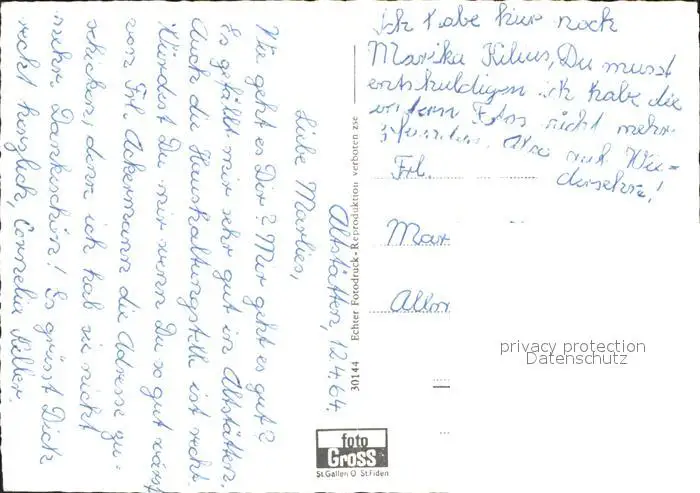 Altstätten, 12.4.64.
Liebe Marlies,
Wie geht es Dir? Mir geht es gut?
Es gefällt mir sehr gut in Altstätten.
Auch die Haushaltungstelle ist recht.
Würdest Du mir wenn Du so gut wärst
von Frl. Ackermann die Adresse zu-
schicken, denn ich hab sie nicht
mehr. Dankeschön! Es grüsst Dich
recht herzlich, Cornelia Miller.
Ich habe hier noch
Marika Kilius, Du musst
entschuldigen ich habe die
andern Fotos nicht mehr
gefunden. Also auf Wie-
dersehn!
Frl.
Mar
30144 Echter Fotodruck - Reproduktion verboten zse
foto
Gross
St. Gallen O St. Fiden
privacy protection
Datenschutz